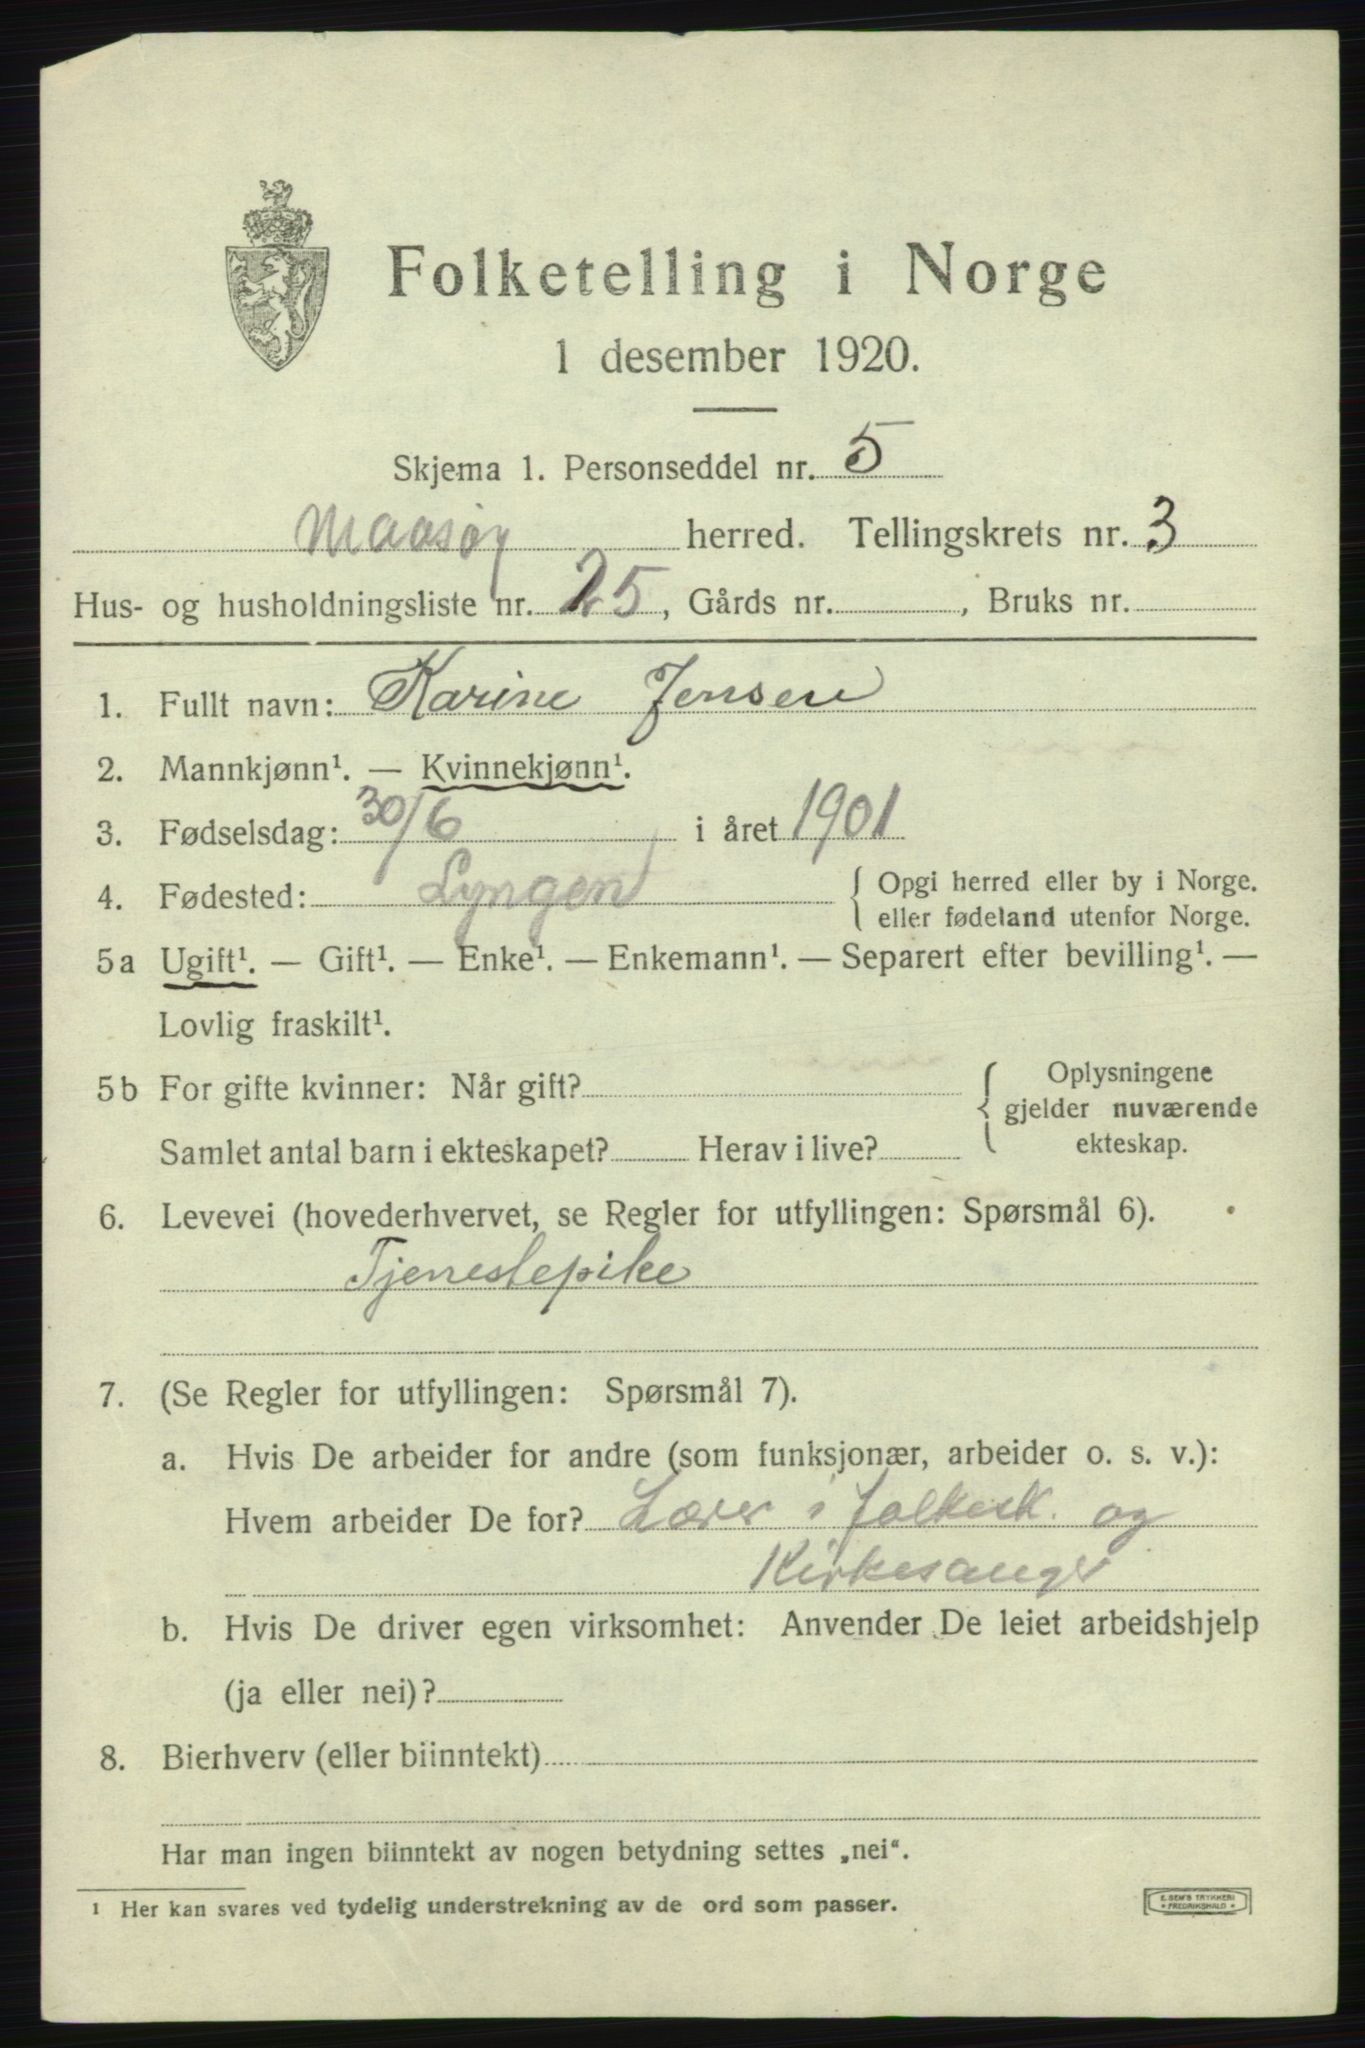 Folketelling i Norge
1 desember 1920.
Skjema 1. Personseddel nr. 5
Maasøy herred. Tellingskrets nr. 3
Hus- og husholdningsliste nr. 25, Gårds nr. , Bruks nr.
1. Fullt navn: Karine Jensen
2. Mannkjønn¹. — Kvinnekjønn¹.
3. Fødselsdag: 30/6 i året 1901
4. Fødested: Lyngen { Opgi herred eller by i Norge.
eller fødeland utenfor Norge.
5a Ugift¹. — Gift¹. — Enke¹. — Enkemann¹. — Separert efter bevilling¹. —
Lovlig fraskilt¹.
5b For gifte kvinner: Når gift? { Oplysningene
gjelder nuværende
ekteskap.
Samlet antal barn i ekteskapet? Herav i live?
6. Levevei (hovederhvervet, se Regler for utfyllingen: Spørsmål 6).
Tjenestepike
7. (Se Regler for utfyllingen: Spørsmål 7).
a. Hvis De arbeider for andre (som funksjonær, arbeider o. s. v.):
Hvem arbeider De for? Lærer i folkesk. og
Kirkesanger
b. Hvis De driver egen virksomhet: Anvender De leiet arbeidshjelp
(ja eller nei)?
8. Bierhverv (eller biinntekt)
Har man ingen biinntekt av nogen betydning settes „nei“.
¹ Her kan svares ved tydelig understrekning av de ord som passer.
E. SEM'S TRYKKERI
* FREDRIKSHALD *